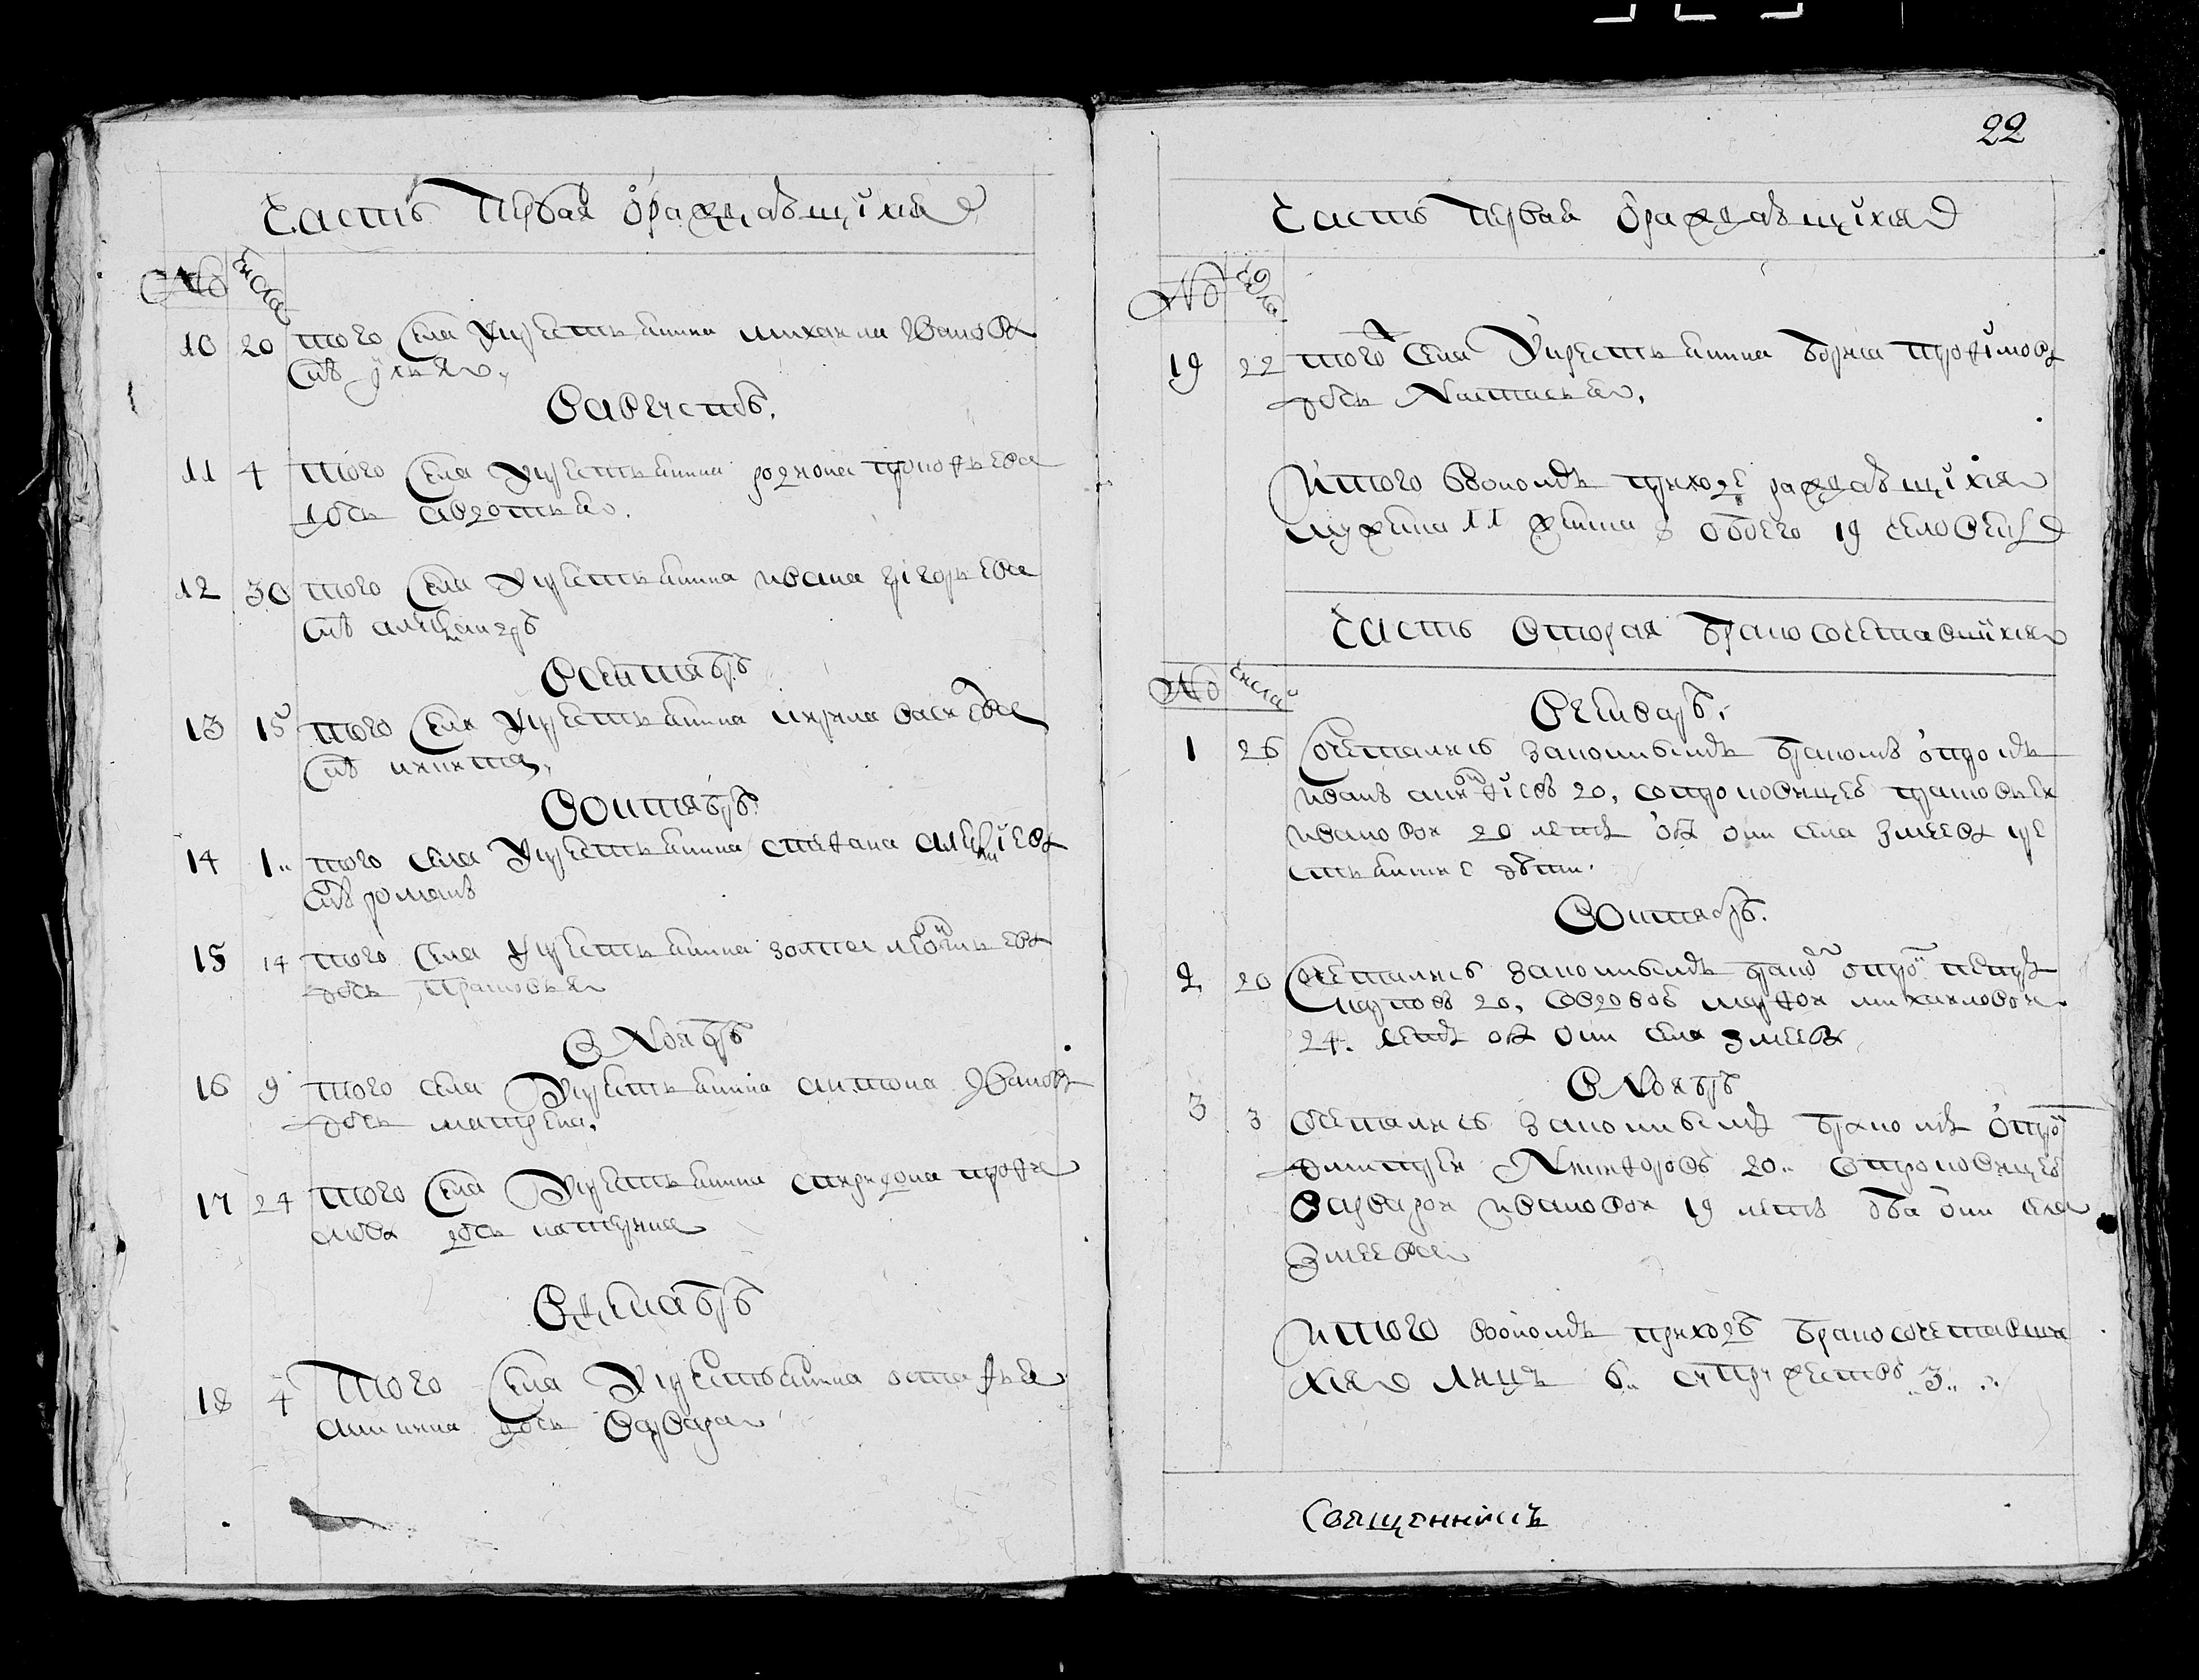 Часть первая ораждавшихся
№ числа
10 20 того села крестьянина михаила Иванова
снъ илья
в августъ.
11 4 того села крестьянина родиона прокофьева
дочь авдотья.
12 30 того села крестьянина ивана григорьева
снъ александръ
в сентябрь
13 15 того села крестьянина кирила васильева
снъ никита,
в октябрь
14 1 того села крестьянина степана алексиева
снъ романъ
15 14 того села крестьянина
дочь прасковья
в Ноябрь
16 9 того села крестьянина антона Иванова
дочь матрена,
17 24 того села крестьянина спиридона
дочь катерина
в декабрь
18 4 того села крестьянина остафья
аникина дочь варвара
22
Часть первая ораждавшихся
№
19 22 того села крестьянина бориса трофимова
дочь Настасья,
Итого воономъ приходе раждавшихся
мужеска 11 женска 8 обоего 19 человекъ
часть вторая бракосочетавшихся
№ числа
в генварь.
1 26 Сочеталися законнымъ бракомъ отрокъ
иванъ 20, сотроковицею прасковьей
ивановой 20 летъ оба они села змеева кре
стьянские дети.
в октябрь.
2 20 Сочеталися законнымъ бракомъ отрокъ петръ
карповъ 20, совдовою марфой михайловой
24. летъ оба они села змеева
в Ноябрь
3 3 Сочеталися законнымъ бракомъ отрокъ
димитрей Никифоровъ 20 сотроковицею
варварой ивановой 19 летъ оба они села
змеева
итого воономъ приходе бракосочетавши
хся лицъ 6 супружествъ 3
Священникъ